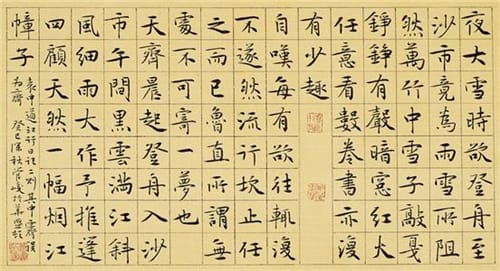 夜大雪時欲登舟至
沙市竟為雨雪所阻
然萬竹中雪子敲戛
錚錚有聲暗窓紅火
任意看數卷書亦復
有少趣
自嘆每有欲往輒復
不遂然流行坎止任
之而已魯直所謂無
處不可寄一夢也
天齊晨起登舟入沙
市午間黑雲滿江斜
風細雨大作予推篷
四顧天然一幅烟江
幛子
袁中道江行日記二則其中霽誤
為齊癸巳深秋管峻於